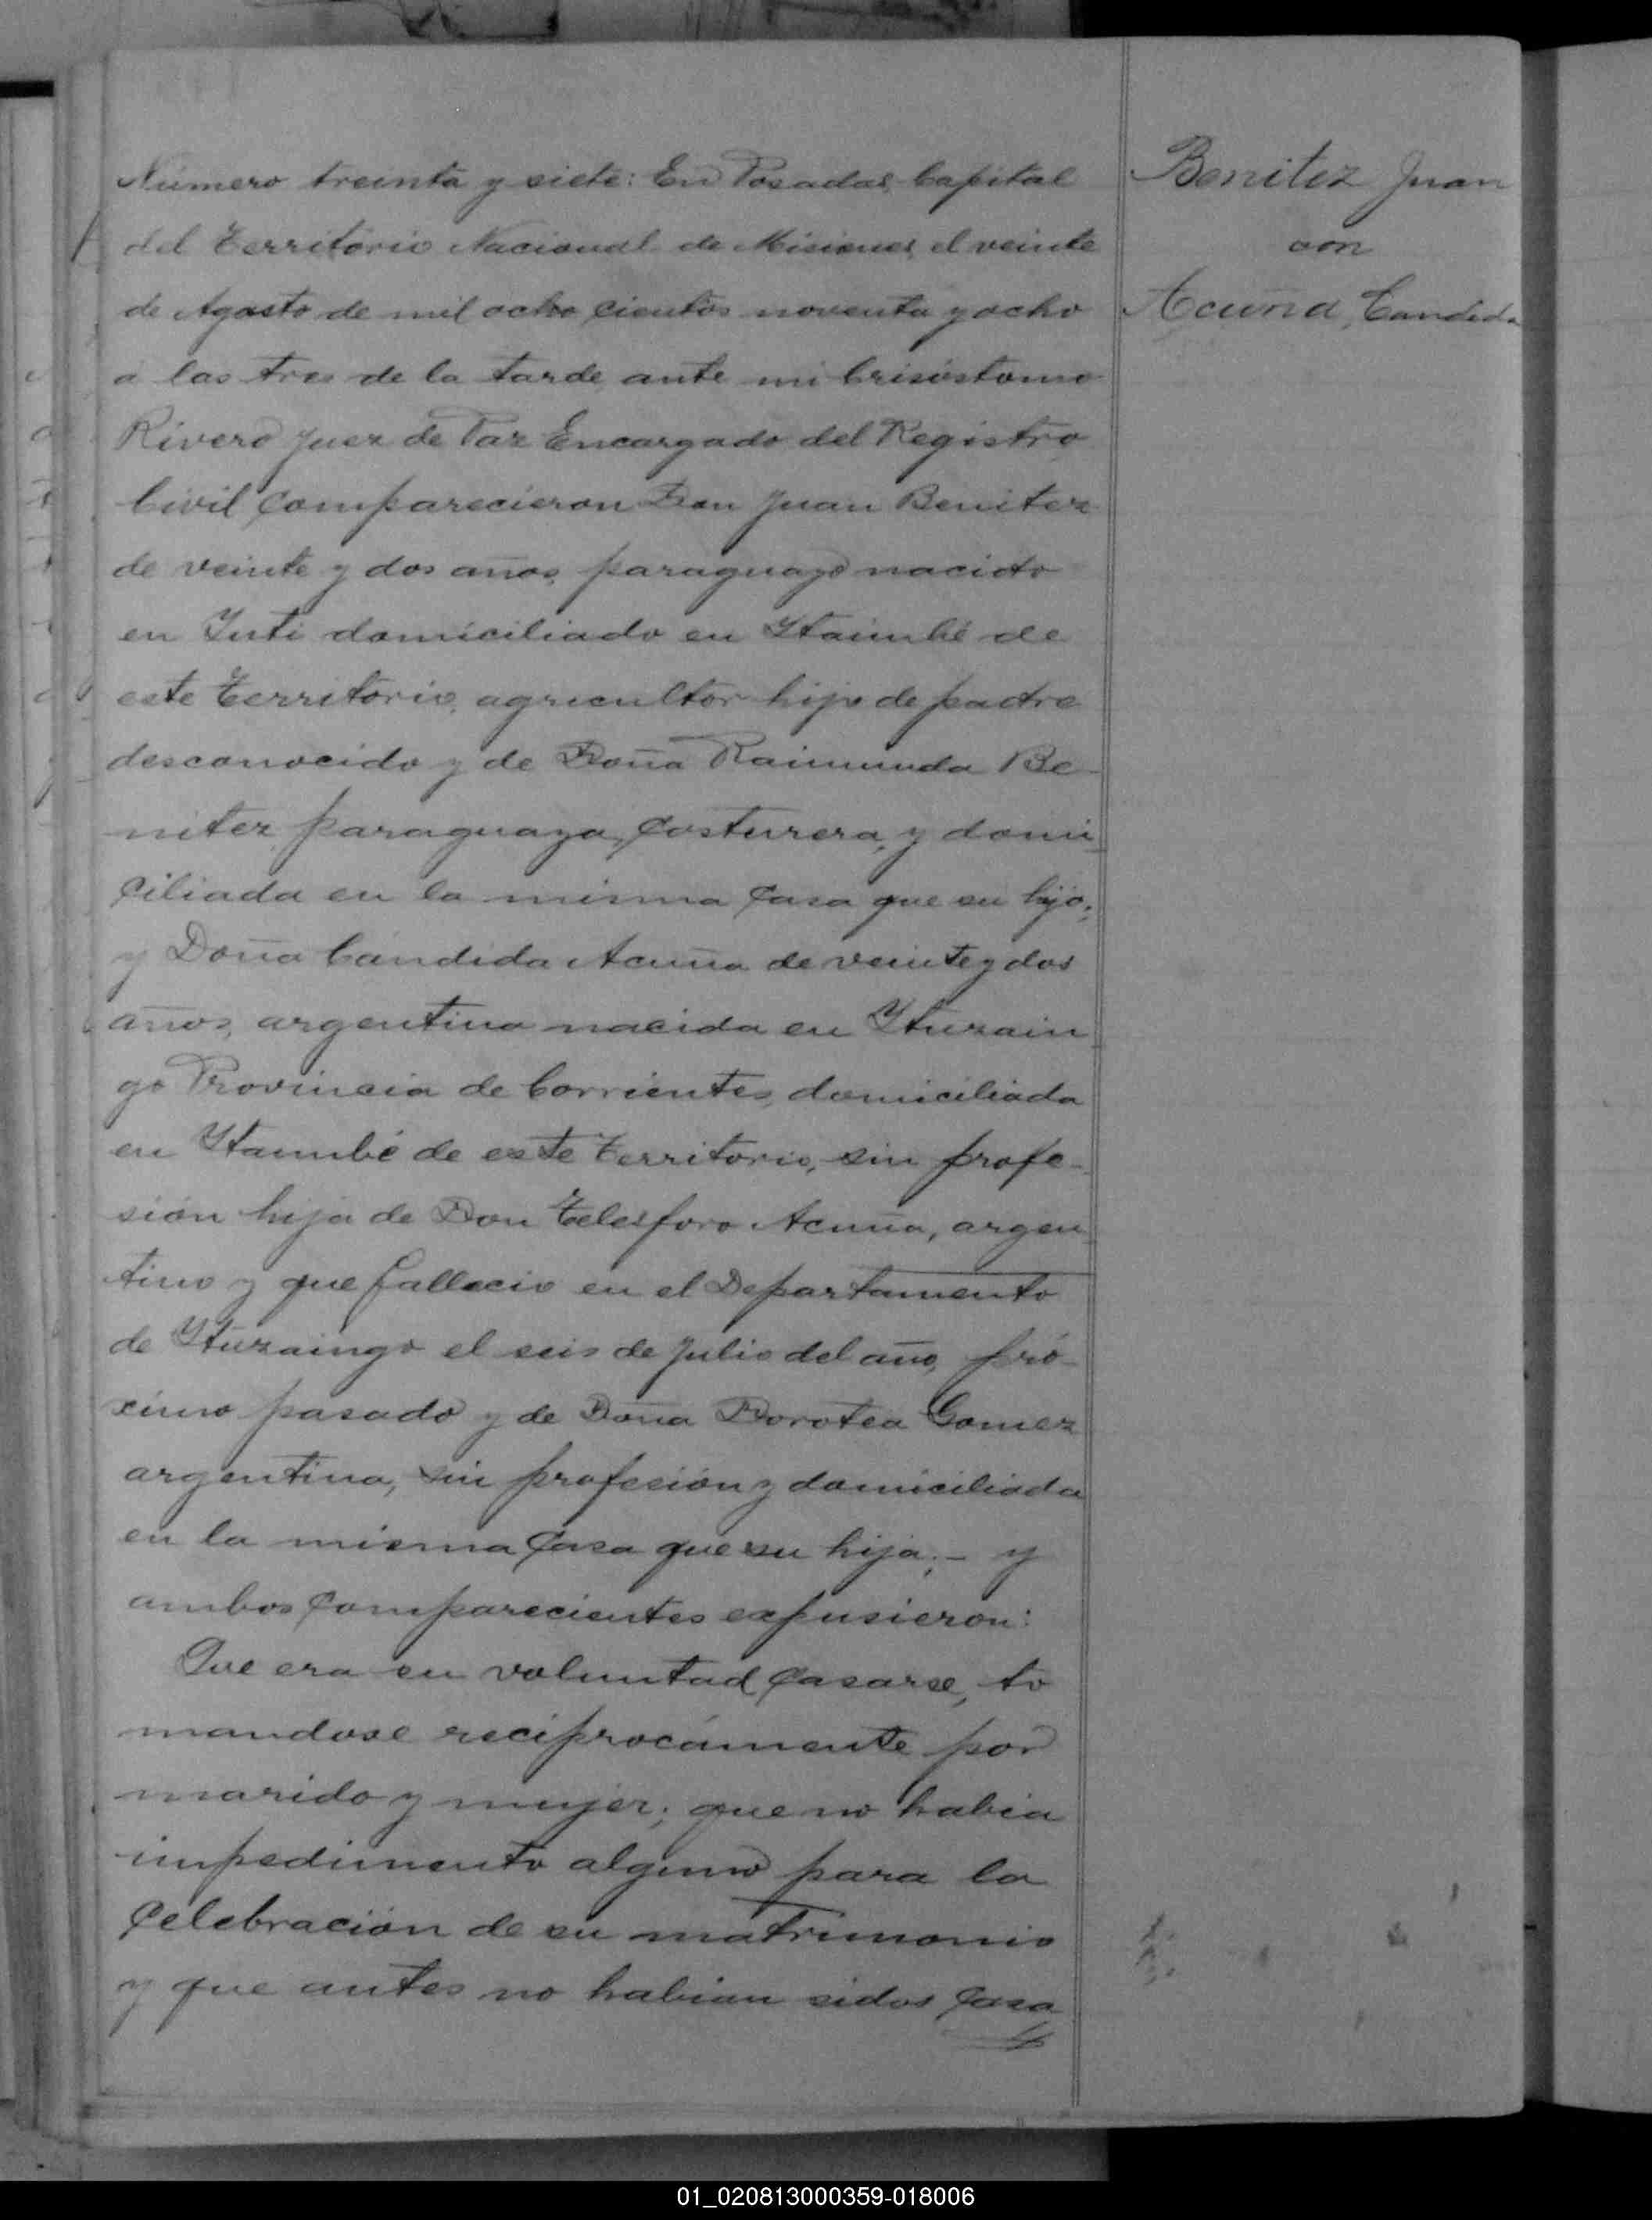 Número treinta y siete: En Posadas, Capital
del Territorio Nacional de Misiones, el veinte
de Agosto de mil ocho cientos noventa y ocho
a las tres de la tarde, ante mi Crisóstomo
Rivero Juez de Paz Encargado del Registro
Civil Comparecieron Don Juan Benitez
de veinte y dos años, paraguayo nacido
en Yuti domiciliado en Ytaimbé de
este Territorio, agricultor hijo de padre
desconocido y de Doña Raimunda Be-
nitez, paraguaya, Costurera, y domi
ciliada en la misma Casa que su hijo;
y Doña Cándida Acuña de veinte y dos
años, argentina nacida en Ytuzain
go Provincia de Corrientes, domiciliada
en Ytaimbé de este Territorio, sin profe-
sión hija de Don Telesforo Acuña, argen
tino y que falleció en el Departamento
de Ytuzaingo el seis de Julio del año, pró-
ximo pasado y de Doña Dorotea Gomez
argentina, sin profesión y domiciliada
en la misma Casa que su hija;- y
ambos Comparecientes expusieron:
Que era su voluntad Casarse, to
mandose recíprocamente por
marido y mujer; que no habia
impedimento alguno para la
Celebración de su matrimonio
y que antes no habian sidos Casa
Benitez Juan
con
Acuña, Candida
01_020813000359-018006